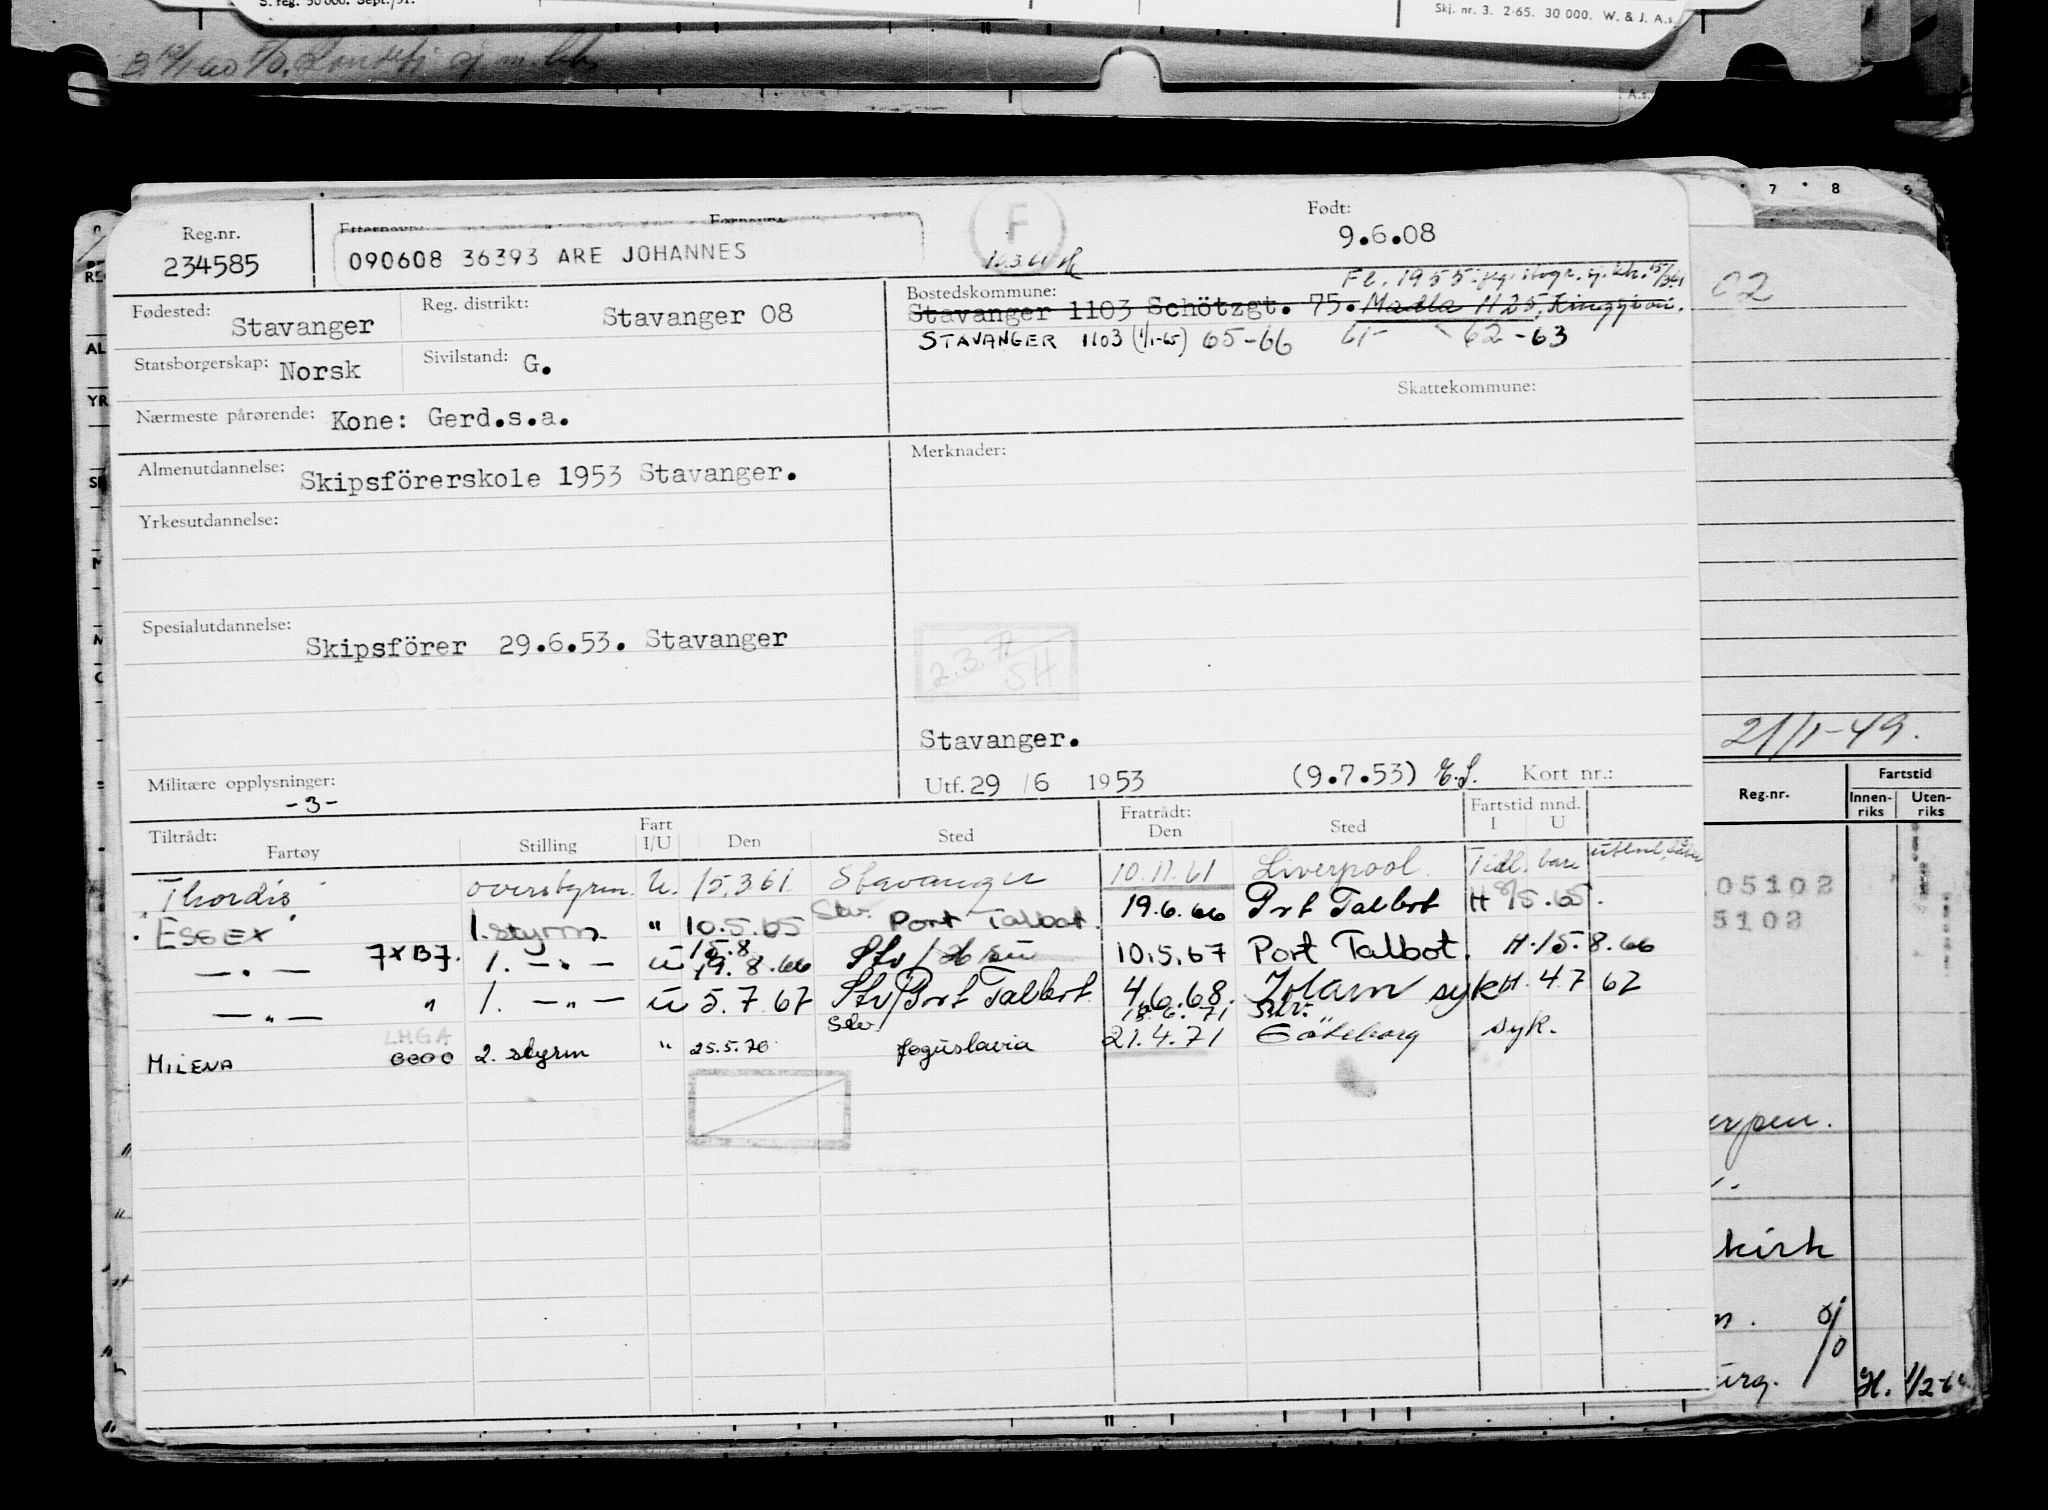 S. reg. 50 000. Sept./51.
Skj. nr. 3. 2-65. 30 000. W. & J. A.s.
A.s.
7 8 9
Reg.nr.
234585
Etternavn: Fornavn:
090608 36393 ARE JOHANNES
F
Født:
9.6.08
Fødested: Stavanger
Reg. distrikt: Stavanger 08
Bostedskommune:
Stavanger 1103 Schötzgt. 75. Madla H 25,
STAVANGER 1103 (1/1-65) 65-66 61- 62-63
02
Statsborgerskap: Norsk
Sivilstand: G.
Skattekommune:
Nærmeste pårørende: Kone: Gerd.s.a.
Almenutdannelse: Skipsförerskole 1953 Stavanger.
Merknader:
Yrkesutdannelse:
Spesialutdannelse: Skipsförer 29.6.53. Stavanger
2.3.72
SH
Stavanger.
21/1-49.
Militære opplysninger:
-3-
Utf. 29 /6 1953 (9.7.53) E.S. Kort nr.:
Reg.nr. Fartstid
Innenriks Utenriks
Tiltrådt:
Fartøy Stilling Fart I/U Den Sted Fratrådt: Den Sted Fartstid mnd. I U
Thordis overstyrm. U. 15.3 61 Stavanger 10.11.61 Liverpool. Tidl. bare
ESSEX 1. styrm. " 10.5.65 Stv. Port Talbot. 19.6.66 Prt Talbot H 8/5.65.
05102
5102
— . — 7XB7. 1. — . — U 15.8 19.8.66 Stv / 10.5.67 Port Talbot. H.15.8.66
— " — " 1. — " — U 5.7 67 Stv/Port Talbot 4.6.68. syk H. 4.7 67
LMGA
MILENA 0000 2. styrm " 25.5.70 Stv. Joguslavia 21.4.71 Göteborg syk.
kirk
H. 1/2-